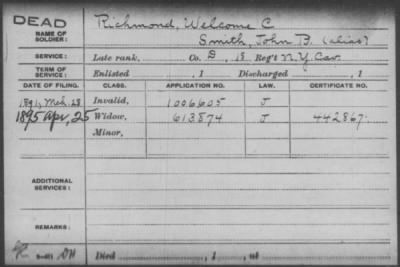 DEAD Richmond, Welcome C
NAME OF SOLDIER: Smith, John B. (alias)
SERVICE: Late rank, Co. D, 18 Reg't N.Y. Cav.
TERM OF SERVICE: Enlisted , 1 Discharged , 1
DATE OF FILING. CLASS. APPLICATION NO. LAW. CERTIFICATE NO.
1891, Mch. 28 Invalid, 1006605 J
1895 Apr, 25 Widow, 613874 J 442867.
Minor,
ADDITIONAL SERVICES:
REMARKS:
Died , 1 , at